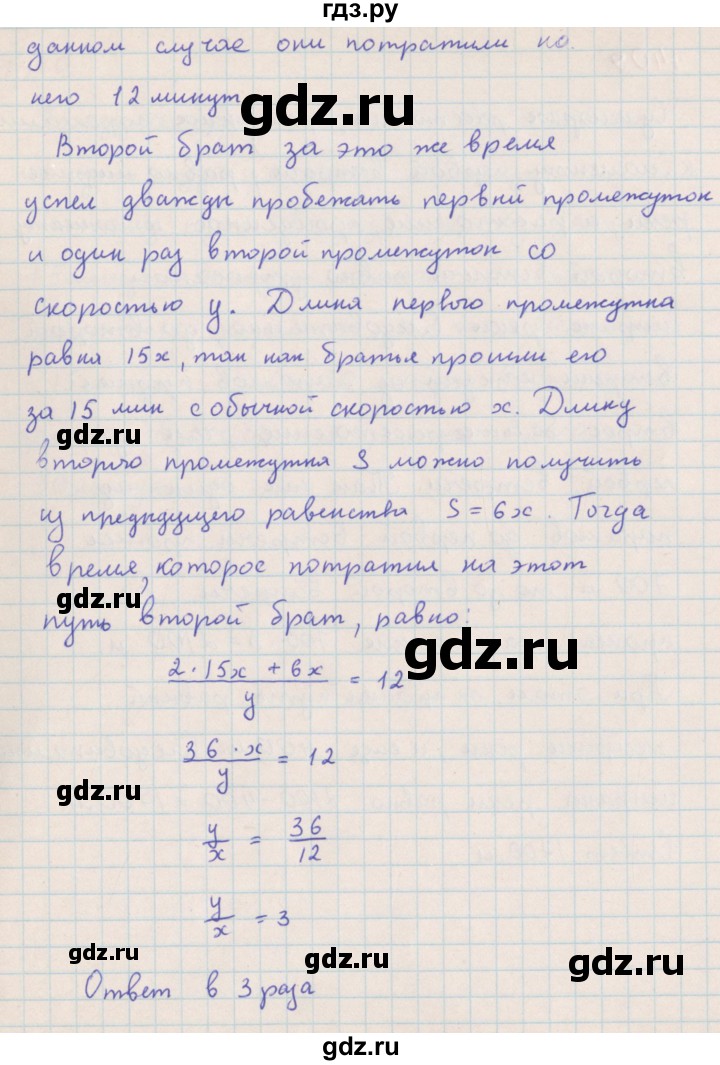 гдз.ру
данном случае они потратили на
него 12 минут
gdz.ru
Второй брат за это же время
успел дважды пробежать первый промежуток
и один раз второй промежуток со
скоростью y. Длина первого промежутка
равна 15x, так как братья прошли его
за 15 мин с обычной скоростью x. Длину
gdz.ru
второго промежутка S можно получить
из предыдущего равенства S = 6x. Тогда
время, которое потратил на этот
gdz.ru
путь второй брат, равно:
gdz.ru
2·15x + 6x / y = 12
36·x / y = 12
gdz.ru
y/x = 36/12
y/x = 3
gdz.ru
gdz.ru
gdz.ru
Ответ в 3 раза
gdz.ru